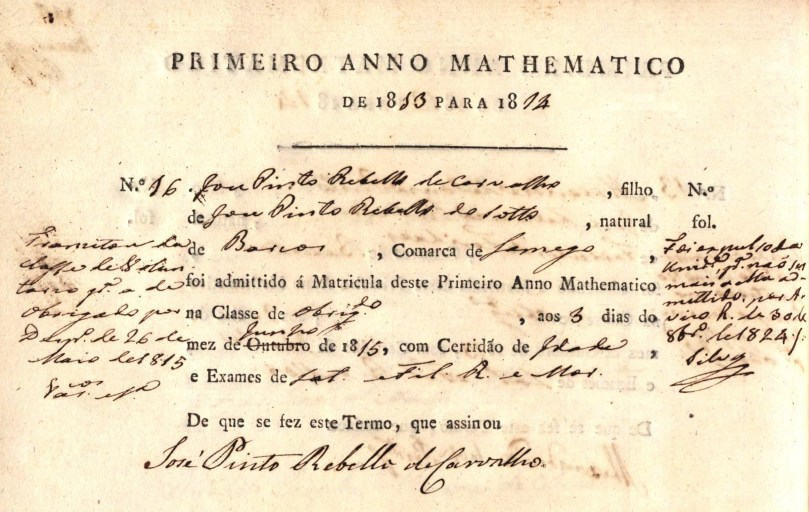 PRIMEIRO ANNO MATHEMATICO
DE 1813 PARA 1814
N.º 16. José Pinto Rebello de Carvalho, filho
de José Pinto Rebello do Sotto, natural
de Barcos, Comarca de Lamego,
foi admittido á Matricula deste Primeiro Anno Mathematico
na Classe de Obrig.do, aos 3 dias do
mez de Outubro Junho de 1815, com Certidão de Idade,
e Exames de Lat. e Fil. R. e Mor.
De que se fez este Termo, que assinou
José Pinto Rebello de Carvalho.
Tranzitou da
Classe de Volun
tario p.ª a de
Obrigado por
Desp. de 26 de
Maio de 1815
N.º
fol.
Foi expulso da
Univ.de p.ª não ser
mais a ella ad-
mittido, por A-
viso R. de 30 de
8br.º de 1824.
Silvª